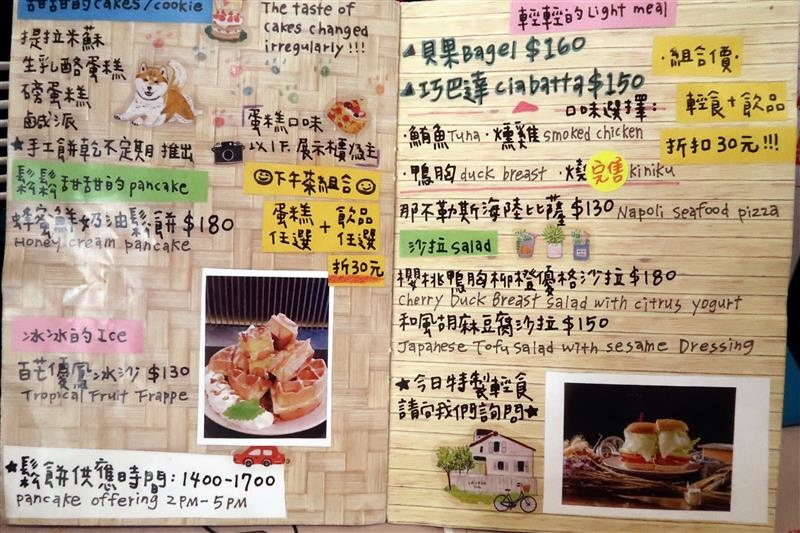 甜甜的cakes/cookie
The taste of
cakes changed
irregularly!!!
提拉米蘇
生乳酪蛋糕
磅蛋糕
鹹派
蛋糕口味
以1F.展示櫃為主
★手工餅乾不定期推出
鬆鬆甜甜的pancake
蜂蜜鮮奶油鬆餅 $180
Honey cream pancake
下午茶組合
蛋糕任選 + 飲品任選
折30元
冰冰的Ice
百芒優鳳冰沙 $130
Tropical Fruit Frappe
★鬆餅供應時間:1400-1700
pancake offering 2PM-5PM
輕輕的Light meal
▲貝果Bagel $160
▲巧巴達ciabatta $150
·組合價·
輕食+飲品
折扣30元!!!
口味選擇:
·鮪魚Tuna ·燻雞smoked chicken
·鴨胸duck breast ·燒 完售 kiniku
那不勒斯海陸比薩 $130 Napoli seafood pizza
沙拉salad
櫻桃鴨胸柳橙優格沙拉 $180
cherry Duck Breast salad with citrus yogurt
和風胡麻豆腐沙拉 $150
Japanese Tofu Salad with sesame Dressing
★今日特製輕食
請向我們詢問★